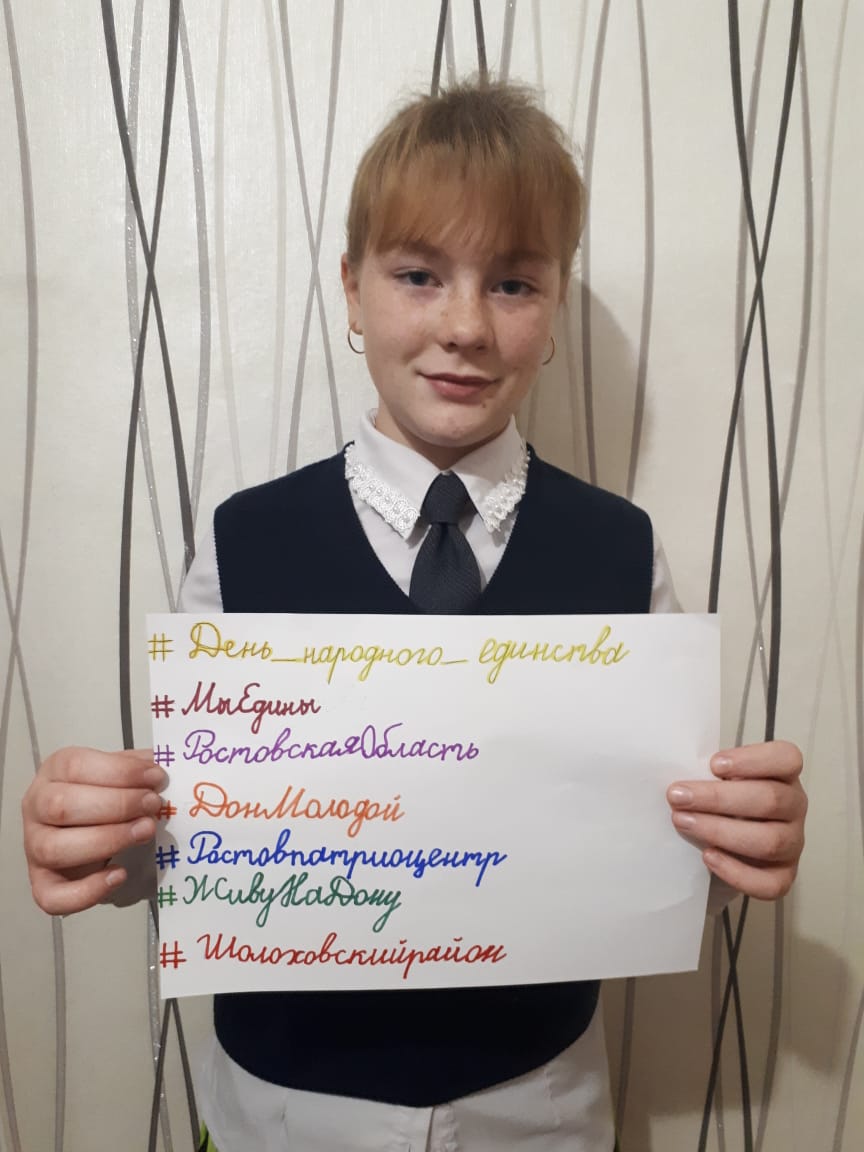 # День_народного_единства
# МыЕдины
# РостовскаяОбласть
# ДонМолодой
# Ростовпатриоцентр
# ЖивуНаДону
# Шолоховскийрайон